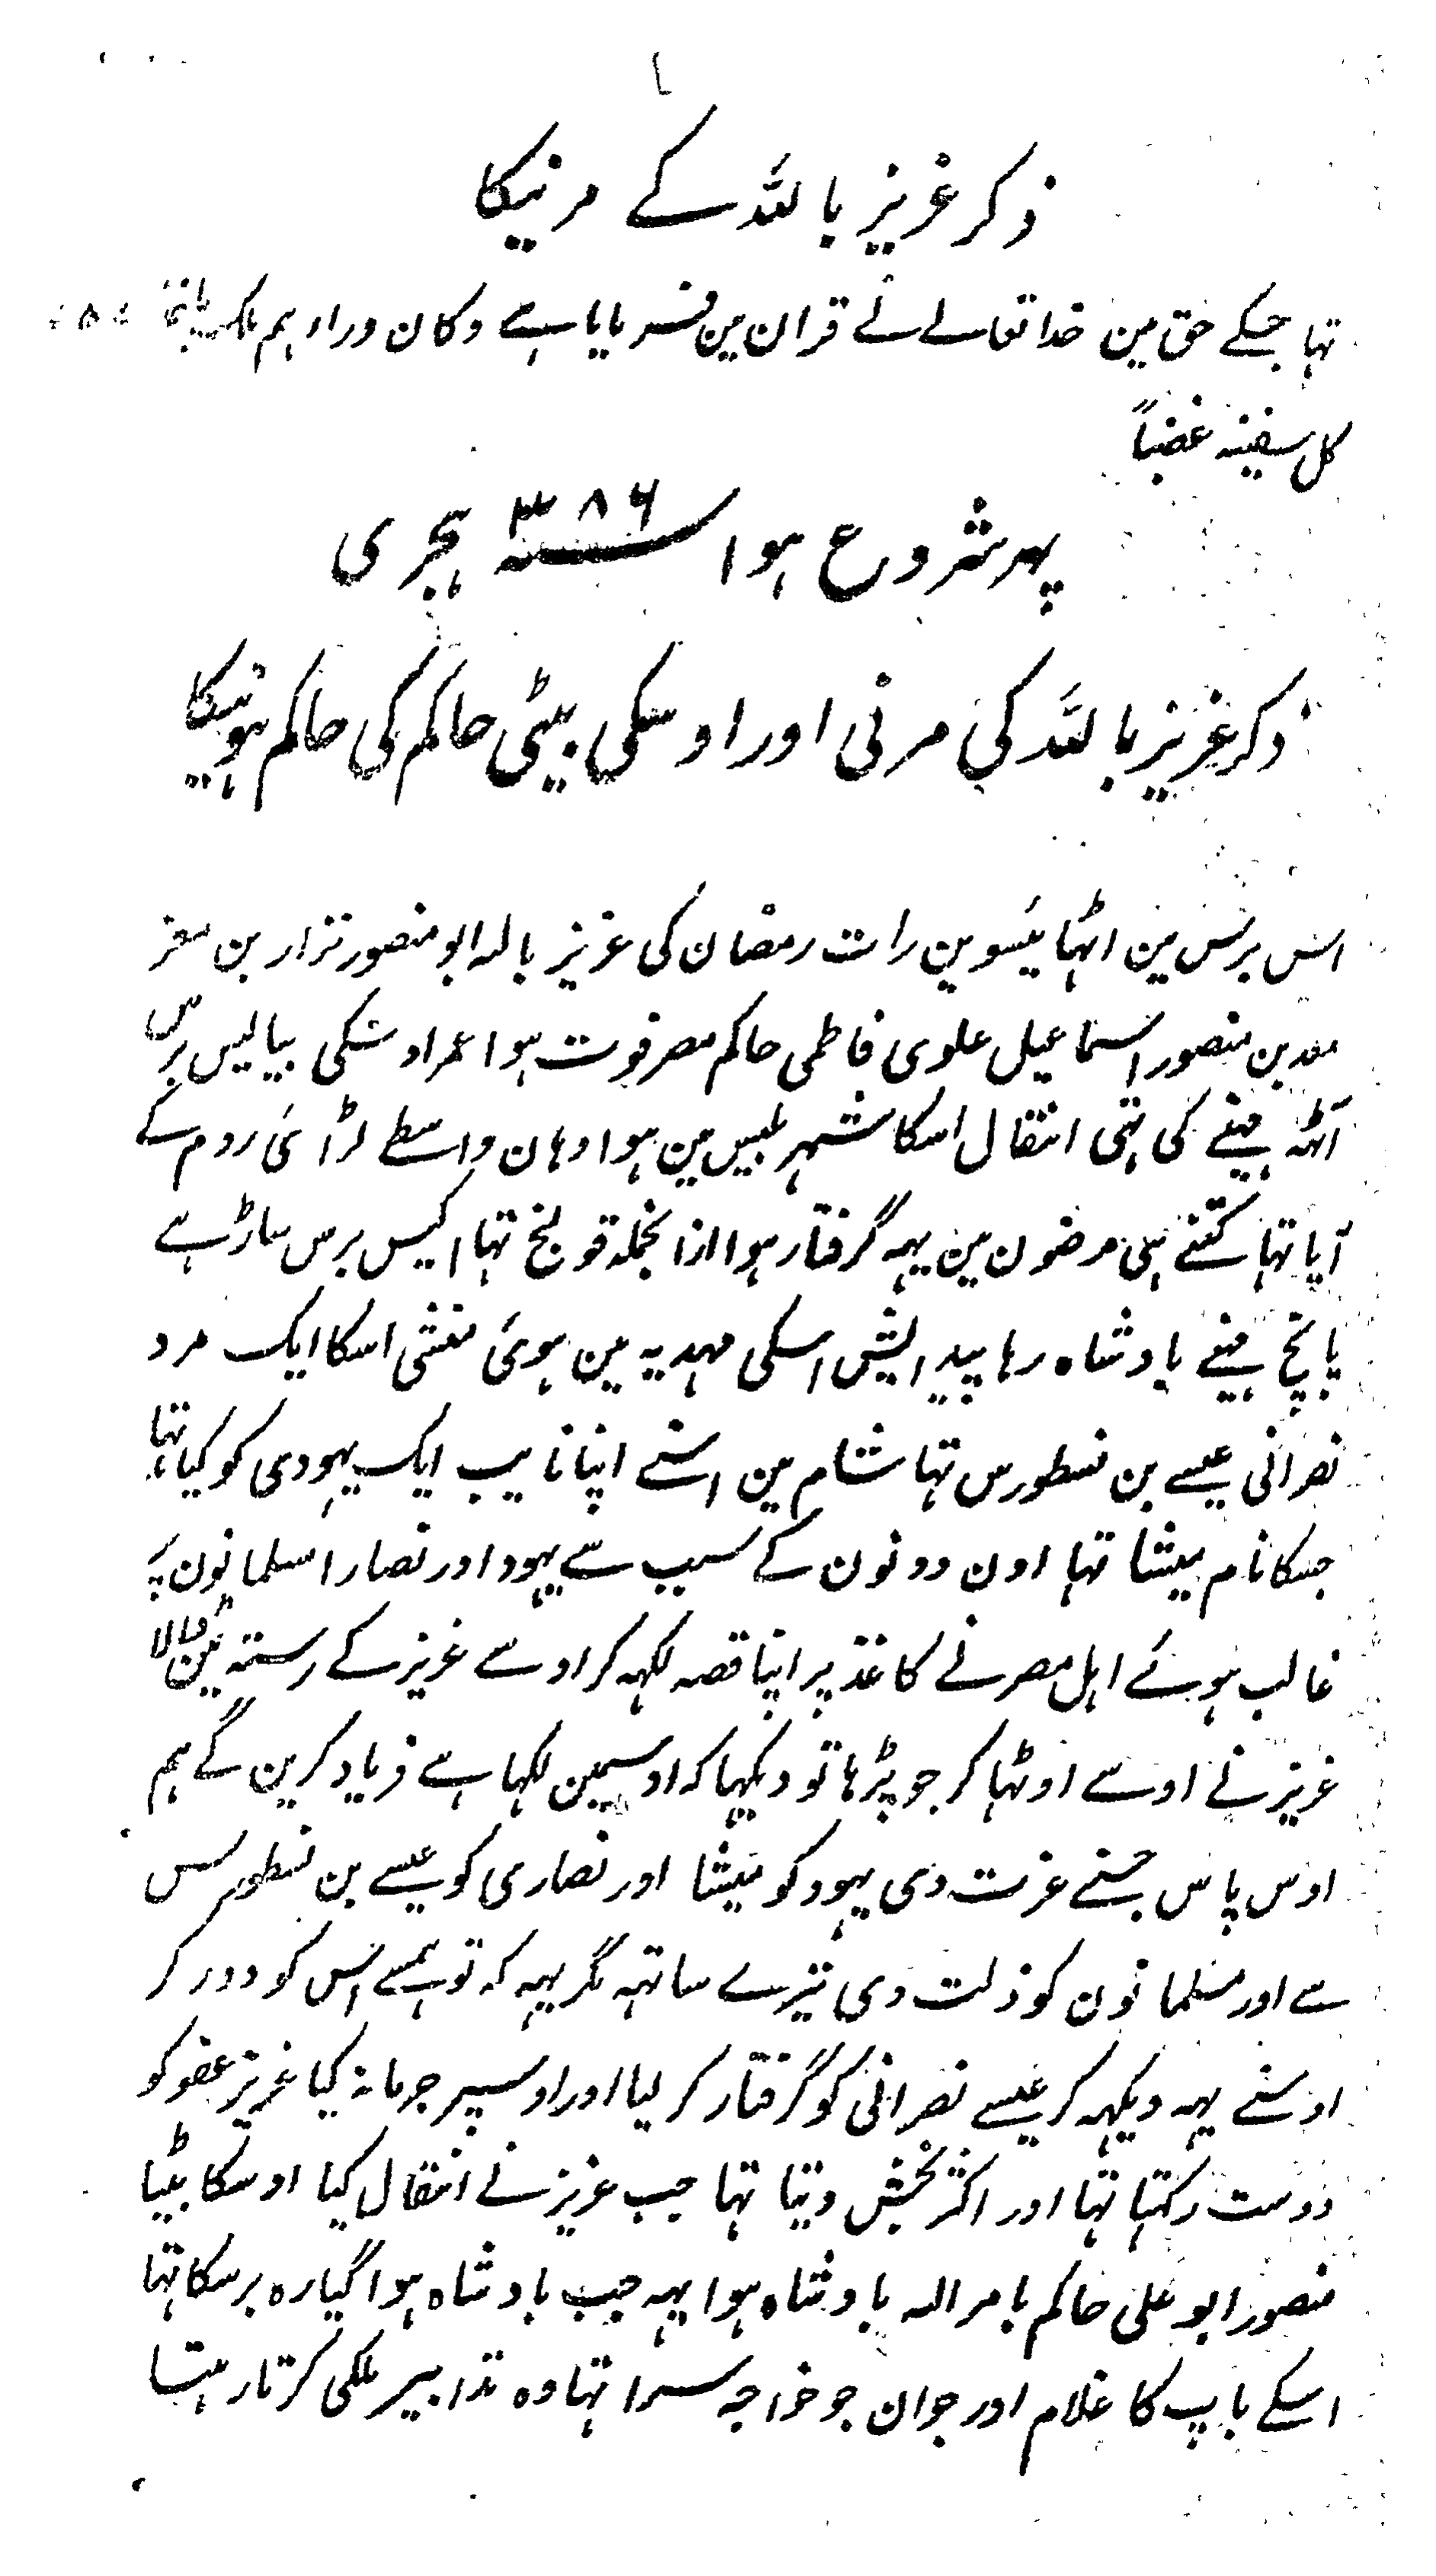 ذکر عزیز باللہ کے مرنیکا
تہا جسکے حق مین خدا تعالے نے قران مین فرمایا ہے وکان وراءہم ملک یاخذ
کل سفینہ غضباً
پہر شروع ہوا سنہ ۳۸۶ ہجری
ذکر عزیز باللہ کی مرنی اور اوسکی بیٹی حاکم کی حاکم ہونیکا
اس برس مین اٹہائیسوین رات رمضان کی عزیز بالله ابو منصور نزار بن معز
معد بن منصور اسماعیل علوی فاطمی حاکم مصر فوت ہوا عمر اوسکی بیالیس برس
آٹہہ مہینے کی تہی انتقال اسکا شہر بلبیس مین ہوا وہان واسطے لڑائی روم کے
آیا تہا کتنے ہی مرضون مین یہہ گرفتار ہوا ازانجملہ قولنج تہا اکیس برس ساڑہے
پانچ مہینے بادشاہ رہا پیدایش اسکی مہدیہ مین ہوئی منشی اسکا ایک مرد
نصرانی عیسے بن نسطورس تہا شام مین اسنے اپنا نایب ایک یہودی کو کیا تہا
جسکا نام میشا تہا اون دونون کے سبب سے یہود اور نصارا مسلمانون پر
غالب ہوئے اہل مصر نے کاغذ پر اپنا قصہ لکہہ کر اوسے عزیز کے رستہ مین ڈالا
عزیز نے اوسے اوٹہا کر جو پڑہا تو دیکہا کہ اوسمین لکہا ہے فریاد کرین گے ہم
اوس پاس جسنے عزت دی یہود کو میشا اور نصاری کو عیسے بن نسطورس
سے اور مسلمانون کو ذلت دی تیرے ساتہہ مگر یہہ کہ تو ہمسے اس کو دور کر
اوسنے یہہ دیکہہ کر عیسے نصرانی کو گرفتار کر لیا اور اوسپر جرمانہ کیا عزیز عفو کو
دوست رکہتا تہا اور اکثر بخش دیتا تہا جب عزیز نے انتقال کیا اوسکا بیٹا
منصور ابو علی حاکم بامر الله بادشاہ ہوا یہہ جب بادشاہ ہوا گیارہ برسکا تہا
اسکے باپ کا غلام اور جوان جو خواجہ سرا تہا وہ تدابیر ملکی کرتا رہتا